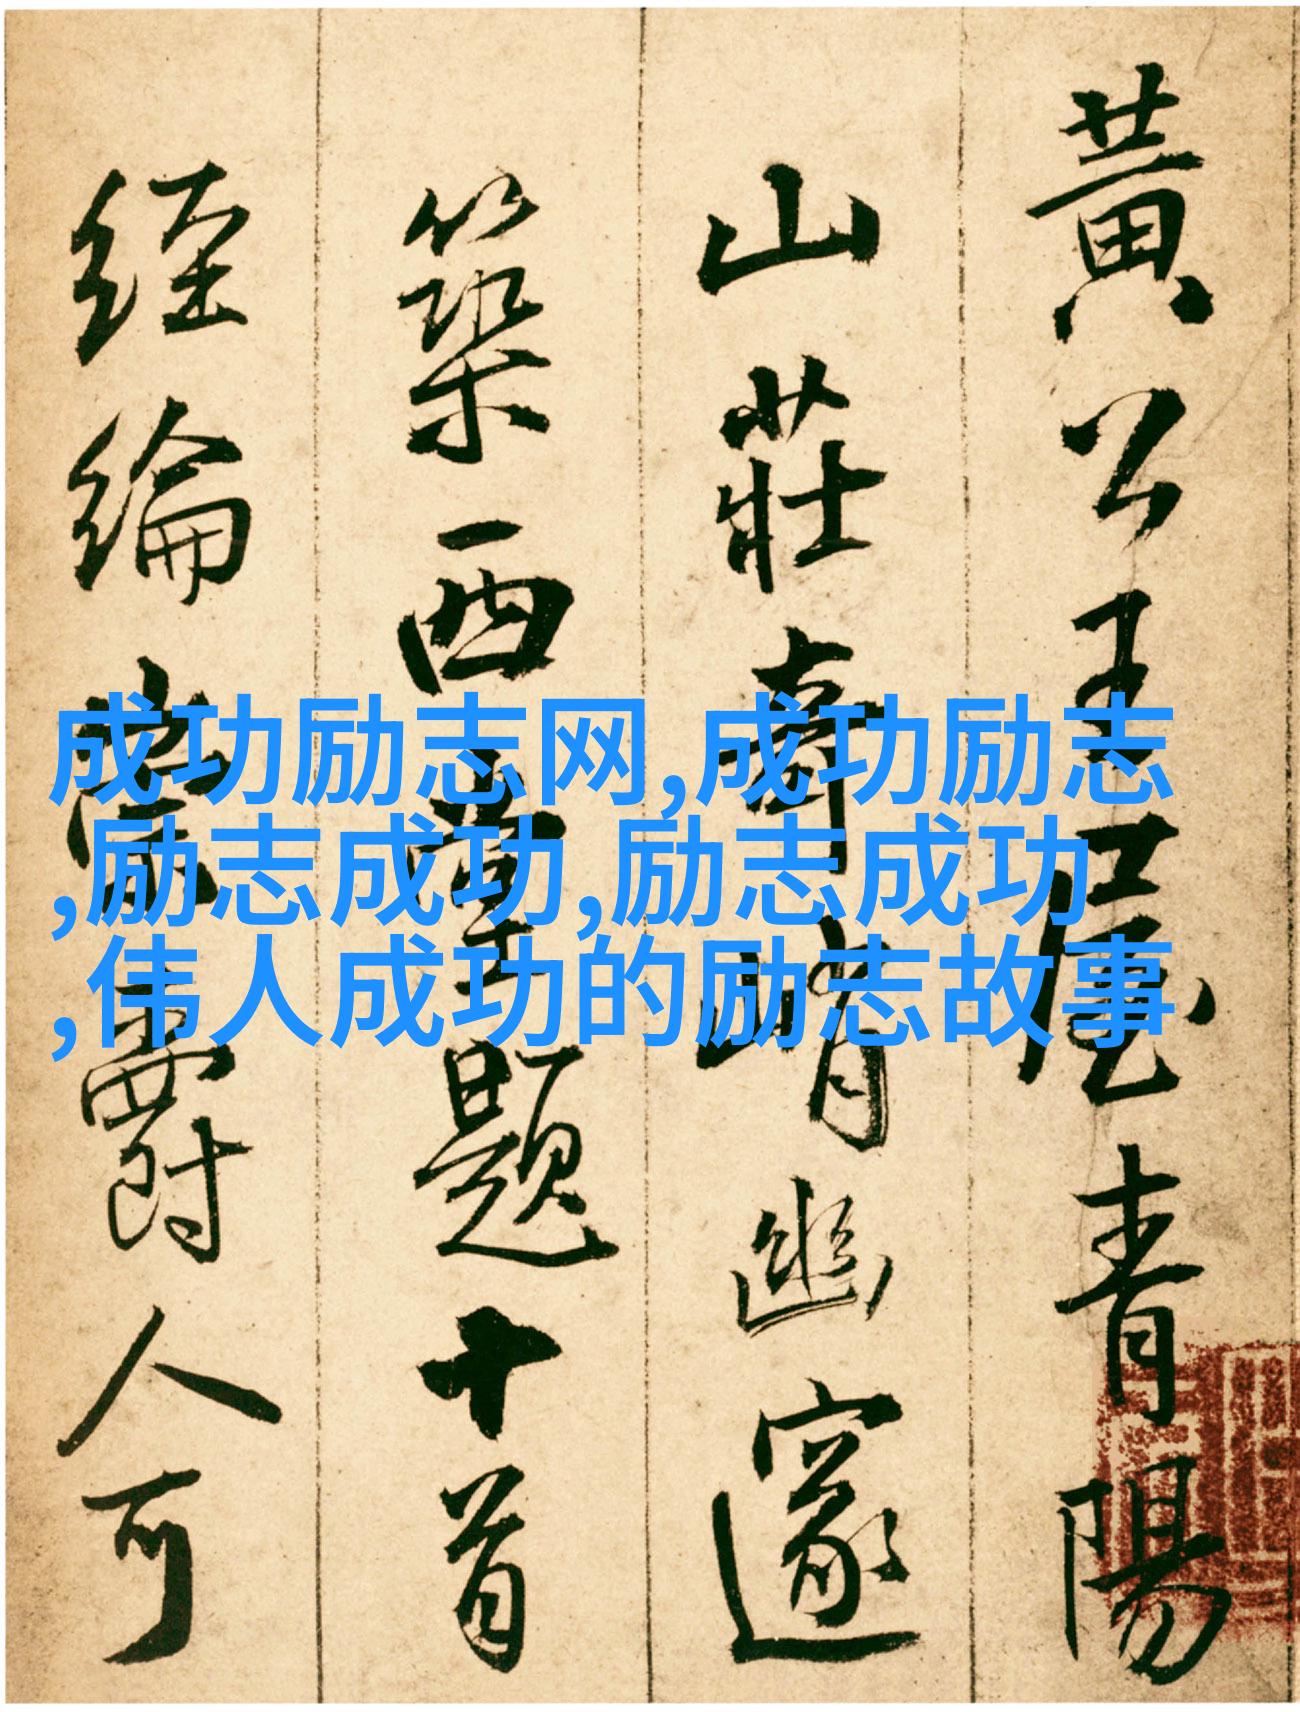 黄公王屋青陽
山莊峭幽邃
築西題十首
經綸爵人可
成功励志网,成功励志
,励志成功,励志成功
,伟人成功的励志故事